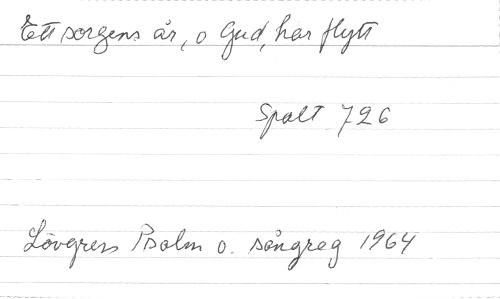 Ett sorgens år, o Gud, har flytt
Spalt 726
Lövgrens Psalm o. sångreg 1964